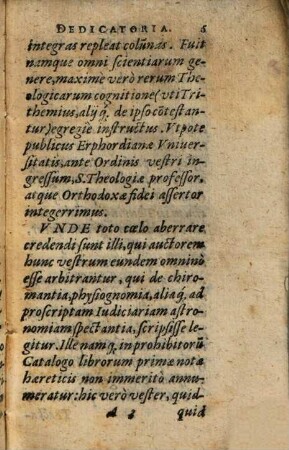 DEDICATORIA. 6
integras repleat colūnas. Fuit
namque omni scientiarum ge-
nere, maxime verò rerum The-
ologicarum cognitione (vti Tri-
themius, alijq̨. de ipso cōtestan-
tur) egregie instructus. Vtpote
publicus Erphordianæ Vniuer-
sitatis, ante Ordinis vestri in-
gressum, S. Theologiæ professor,
atque Orthodoxæ fidei assertor
integerrimus.
VNDE toto cælo aberrare
credendi sunt illi, qui auctorem
hunc vestrum eundem omninò
esse arbitrantur, qui de chiro-
mantia, physiognomia, aliaq̨. ad
proscriptam Iudiciariam astro-
nomiam spectantia, scripsisse le-
gitur. Ille namq̨. in prohibitorū
Catalogo librorum primæ notæ
hæreticis non immeritò annu-
meratur: hic verò vester, quid-
quid